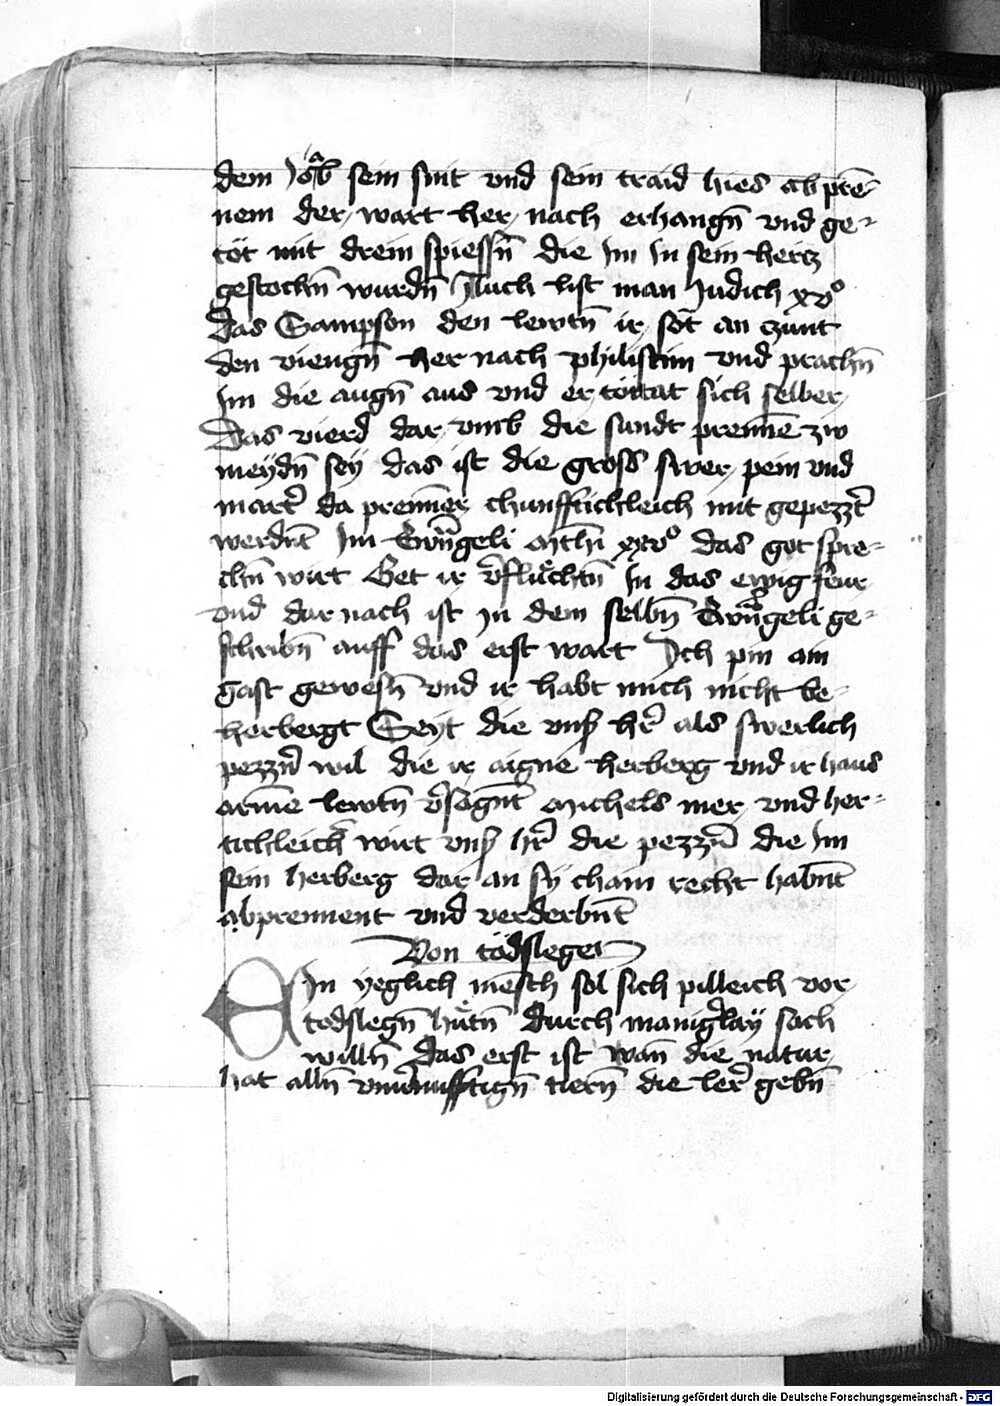 dem Joab sein snit vnd sein traid hies ab pre̅-
nem der wart her nach erhangn̅ vnd ge-
töt mit drein spiessn̅ die im in sein hertz
gestochn̅ wurdn̅ Auch list man Judich xvº
das Sampson den lewtn̅ ir sat an czunt
den viengn̅ her nach philistim vnd prachn̅
im die augn̅ aus vnd er töttat sich selber
Das vierd dar vmb die sundt prenne̅ zw
meydn̅ sey das ist die gross swer pein vnd
marter̅ da prenne̅r chunfftichleich mit gepezzt̅
werdn̅t Im Ewn̅geli Mth̅i xxvº das got spre-
chn̅ wirt Get ir v̅fluͤchtn̅ in das ewig feur
vnd dar nach ist in dem selbn̅ Ewn̅geli ge-
schribn̅ auff das erst wart Ich pin ain
gast gewesn̅ vnd ir habt mich nicht be-
herbergt Seyt die vnser hr̅ als swerlich
pezzn̅ wil die ir aigne herberg vnd ir haus
arme̅ lewtn̅ v̅sagn̅t michels mer vnd her-
tichleicher wirt vnser hr̅ die pezzn̅ die im
sein herberg dar an sy chain recht habn̅t
abprennent vnd verderbn̅t
Von tödsleger
Ein yeglich mensch sol sich pilleich vor
todslegn̅ huͤtn̅ durch maniger̅lay sach
willn̅ Das erst ist wan̅ die natur
hat alln̅ vnuernufftign̅ tiern̅ die ler̅ gebn̅
Digitalisierung gefördert durch die Deutsche Forschungsgemeinschaft - DFG